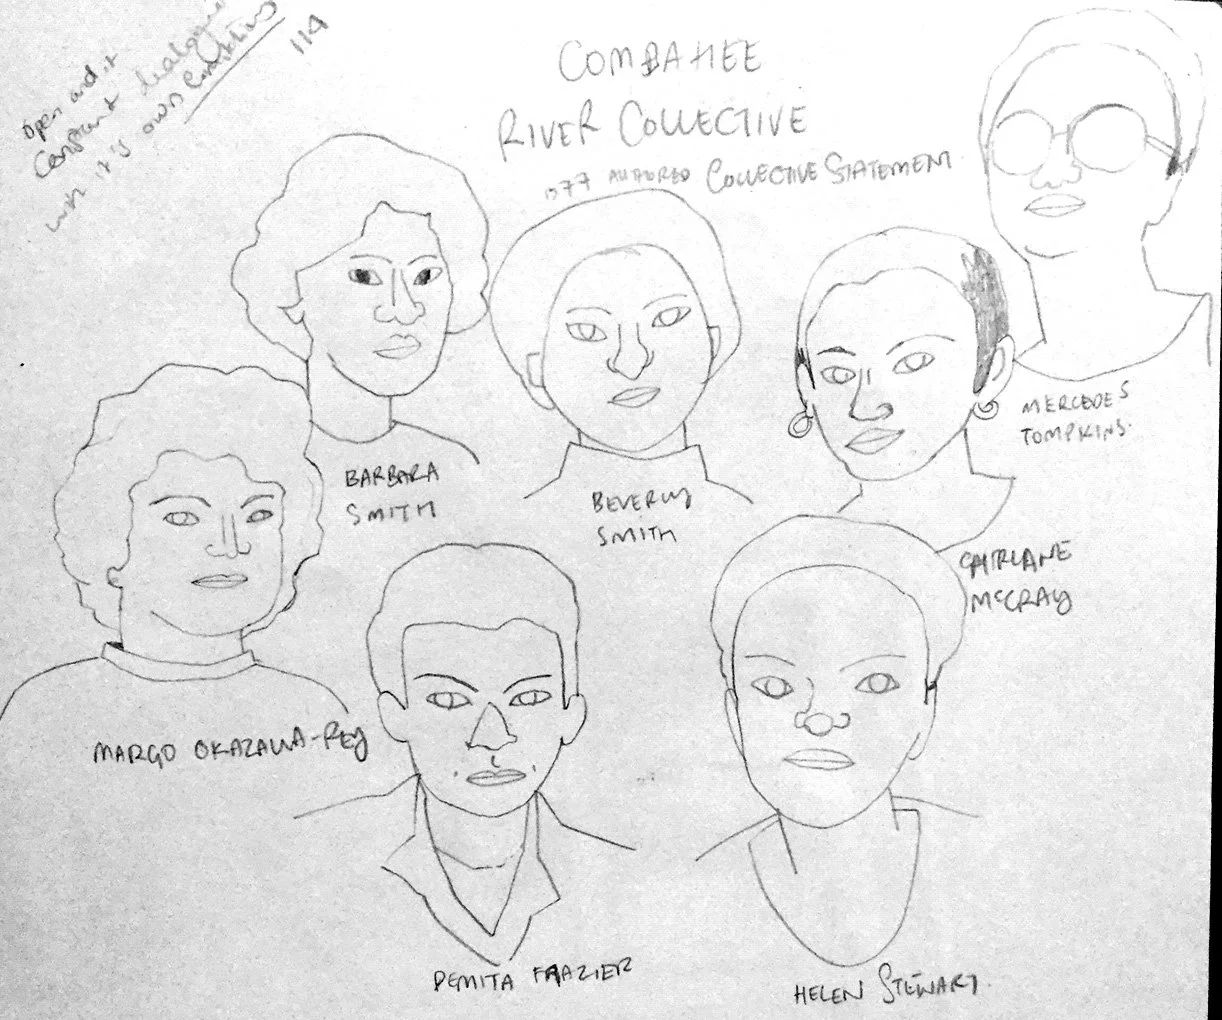 Open and it
Constant dialogue
with it's own
114
COMBAHEE
RIVER COLLECTIVE
1977 AUTHORED COLLECTIVE STATEMENT
MERCEDES
TOMPKINS.
BARBARA
SMITH
BEVERLY
SMITH
CHIRLANE
McCRAY
MARGO OKAZAWA-REY
DEMITA FRAZIER
HELEN STEWART